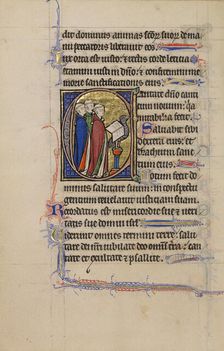 dit dominus animas scõr suor de ma
nu peccatoris liberavit eos
Lux orta est iusto: et rectis corde leticia
Letamini iusti in dño: et confitemini me
morie sanctificationis eius
Cantate dño can
ticum novum: quia
mirabilia fecit
Salvavit sibi
dextera eius: et
brachium sanc
tum eius
Notum fecit do
minus salutare suum: in conspectu
gentium revelavit iusticiam suam
Recordatus est misericordie sue: et ve
ritatis sue domui
Viderunt omnes termini terre: salu
tare dei nr̃i iubilate deo omĩs terra: can
tate et exultate et psallite